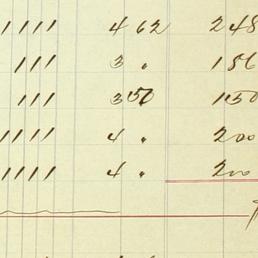 1111 4 62 248
111 3 " 156
111 3 50 150
1111 4 " 200
1111 4 " 200